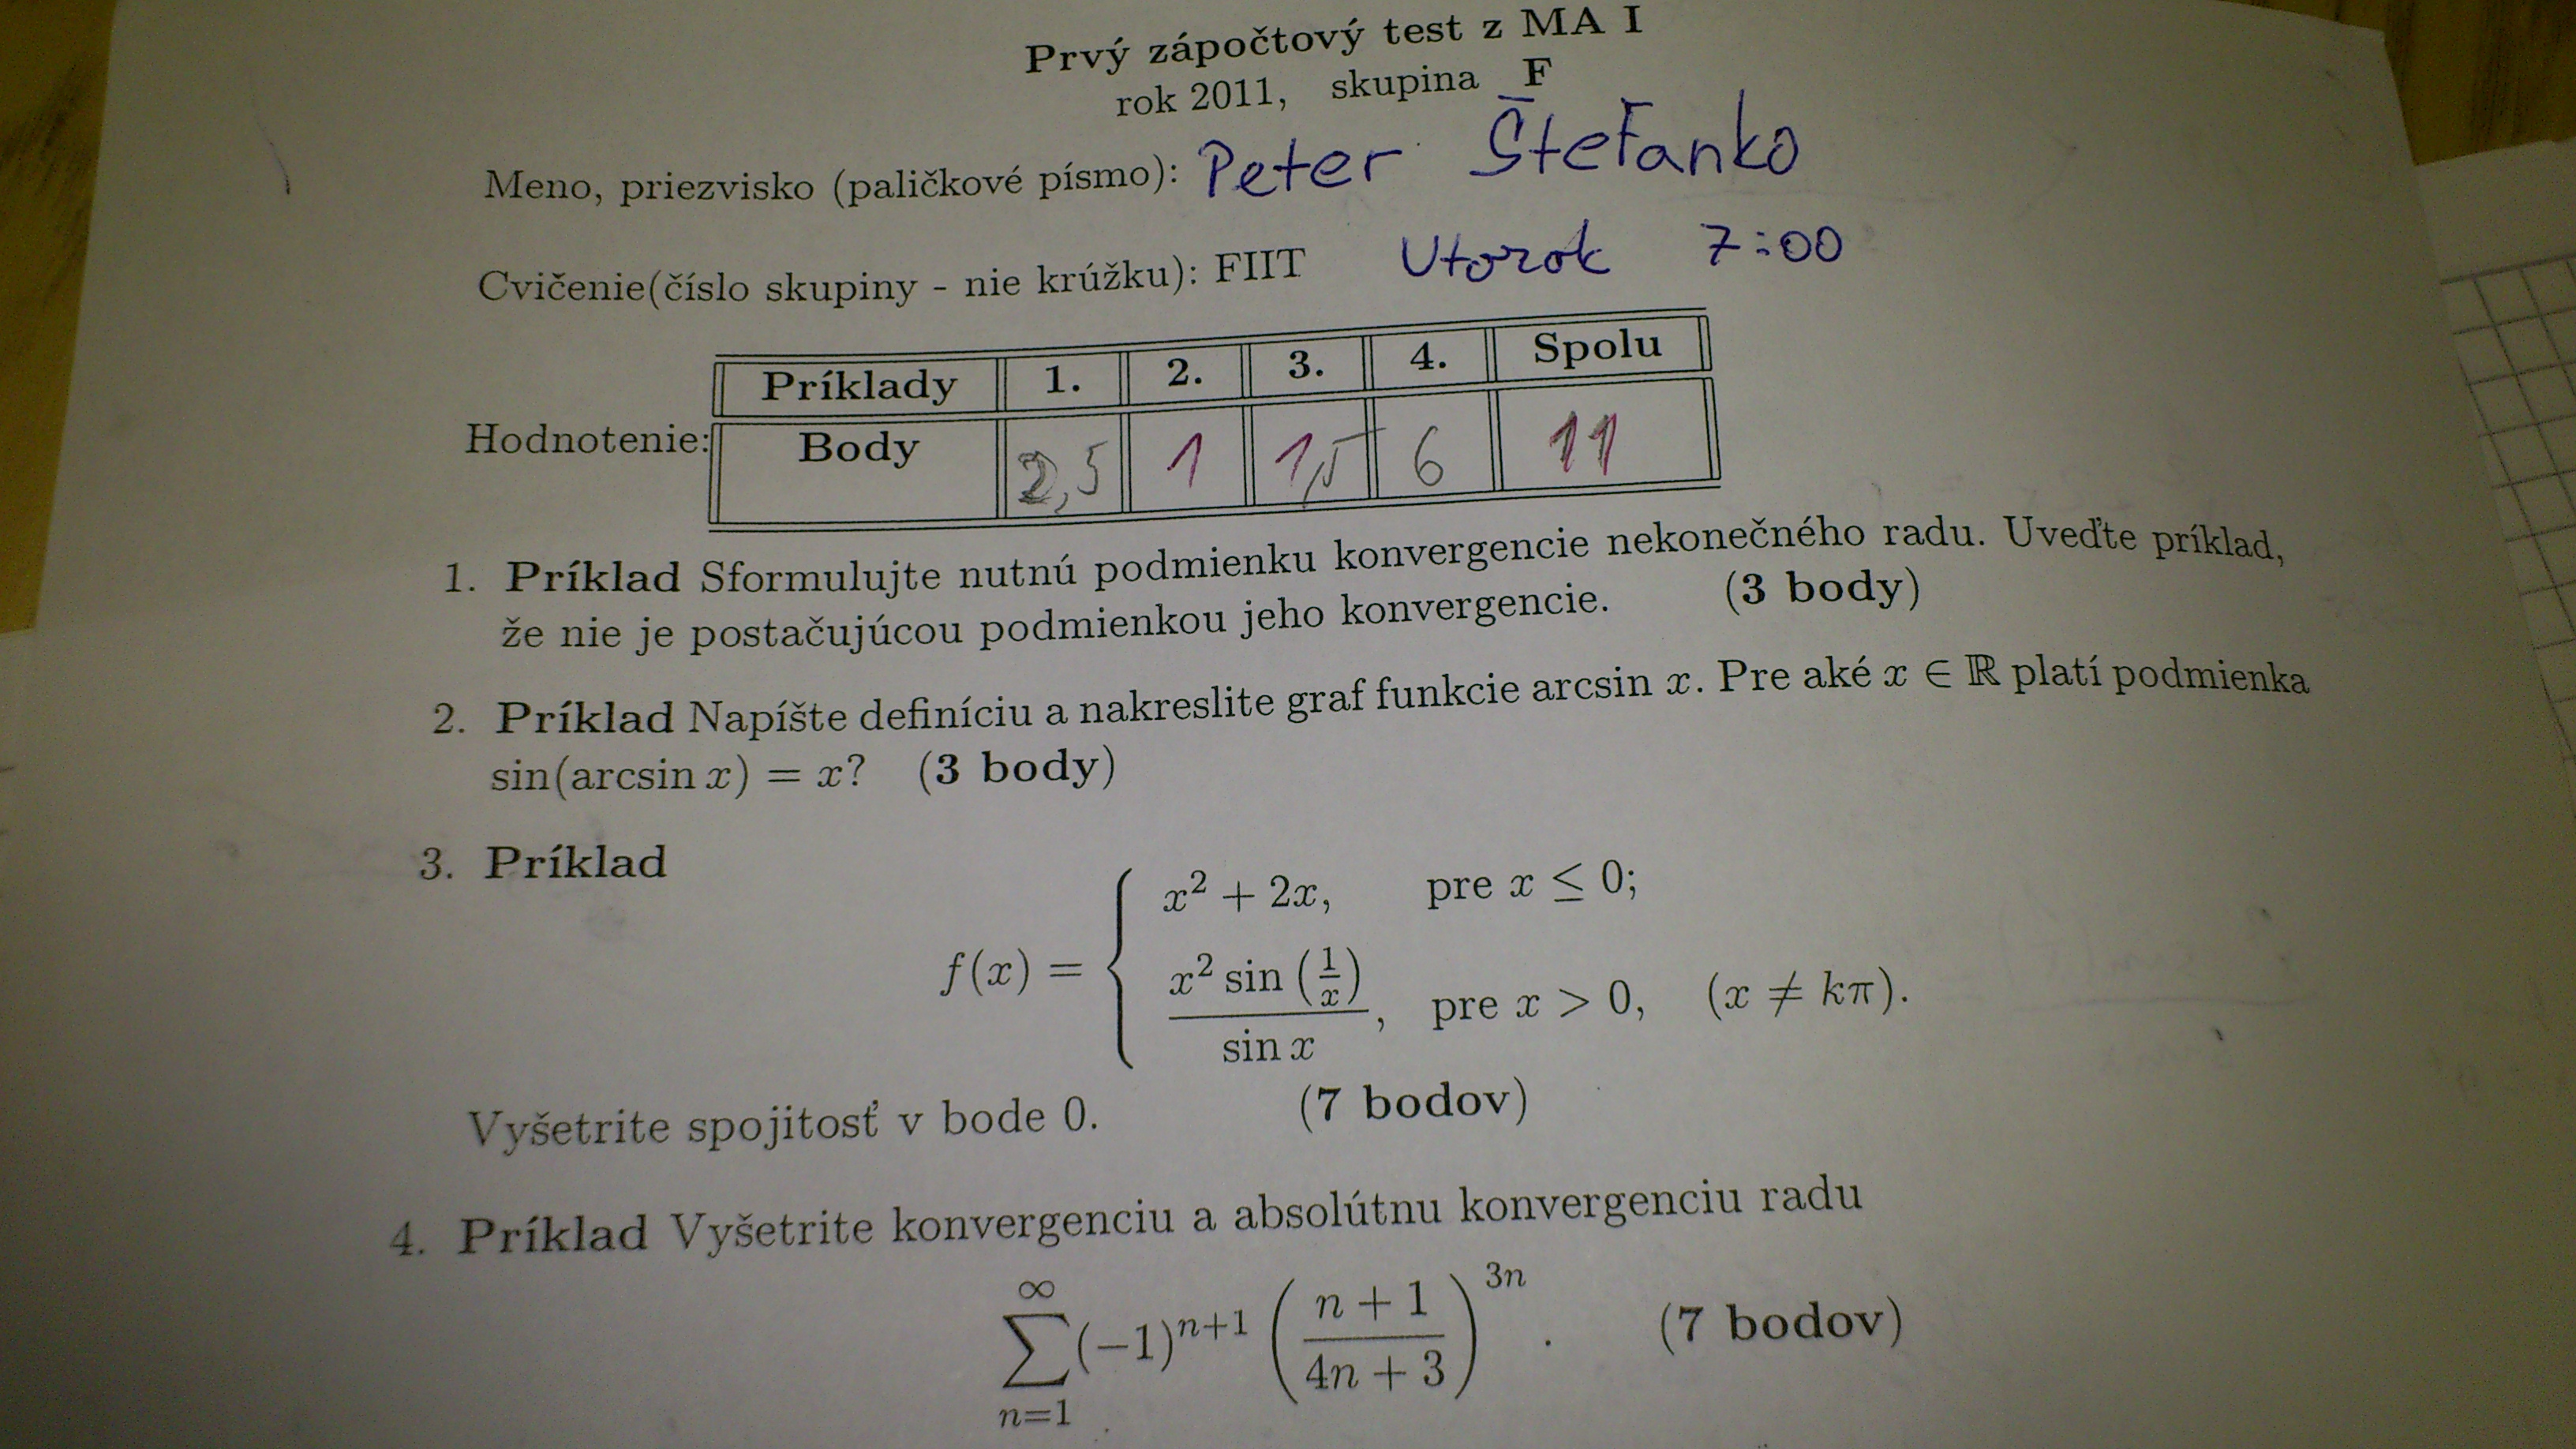 Prvý zápočtový test z MA I
rok 2011, skupina F
Meno, priezvisko (paličkové písmo): Peter Štefanko
Cvičenie(číslo skupiny - nie krúžku): FIIT Utorok 7:00
Príklady 1. 2. 3. 4. Spolu
Hodnotenie: Body 2,5 1 1,5 6 11
1. Príklad Sformulujte nutnú podmienku konvergencie nekonečného radu. Uveďte príklad,
že nie je postačujúcou podmienkou jeho konvergencie. (3 body)
2. Príklad Napíšte definíciu a nakreslite graf funkcie arcsin x. Pre aké x ∈ ℝ platí podmienka
sin(arcsin x) = x? (3 body)
3. Príklad
f(x) = { x² + 2x, pre x ≤ 0;
x² sin (1/x) / sin x, pre x > 0, (x ≠ kπ).
Vyšetrite spojitosť v bode 0. (7 bodov)
4. Príklad Vyšetrite konvergenciu a absolútnu konvergenciu radu
∑_{n=1}^{∞} (−1)^{n+1} ((n + 1)/(4n + 3))^{3n} . (7 bodov)